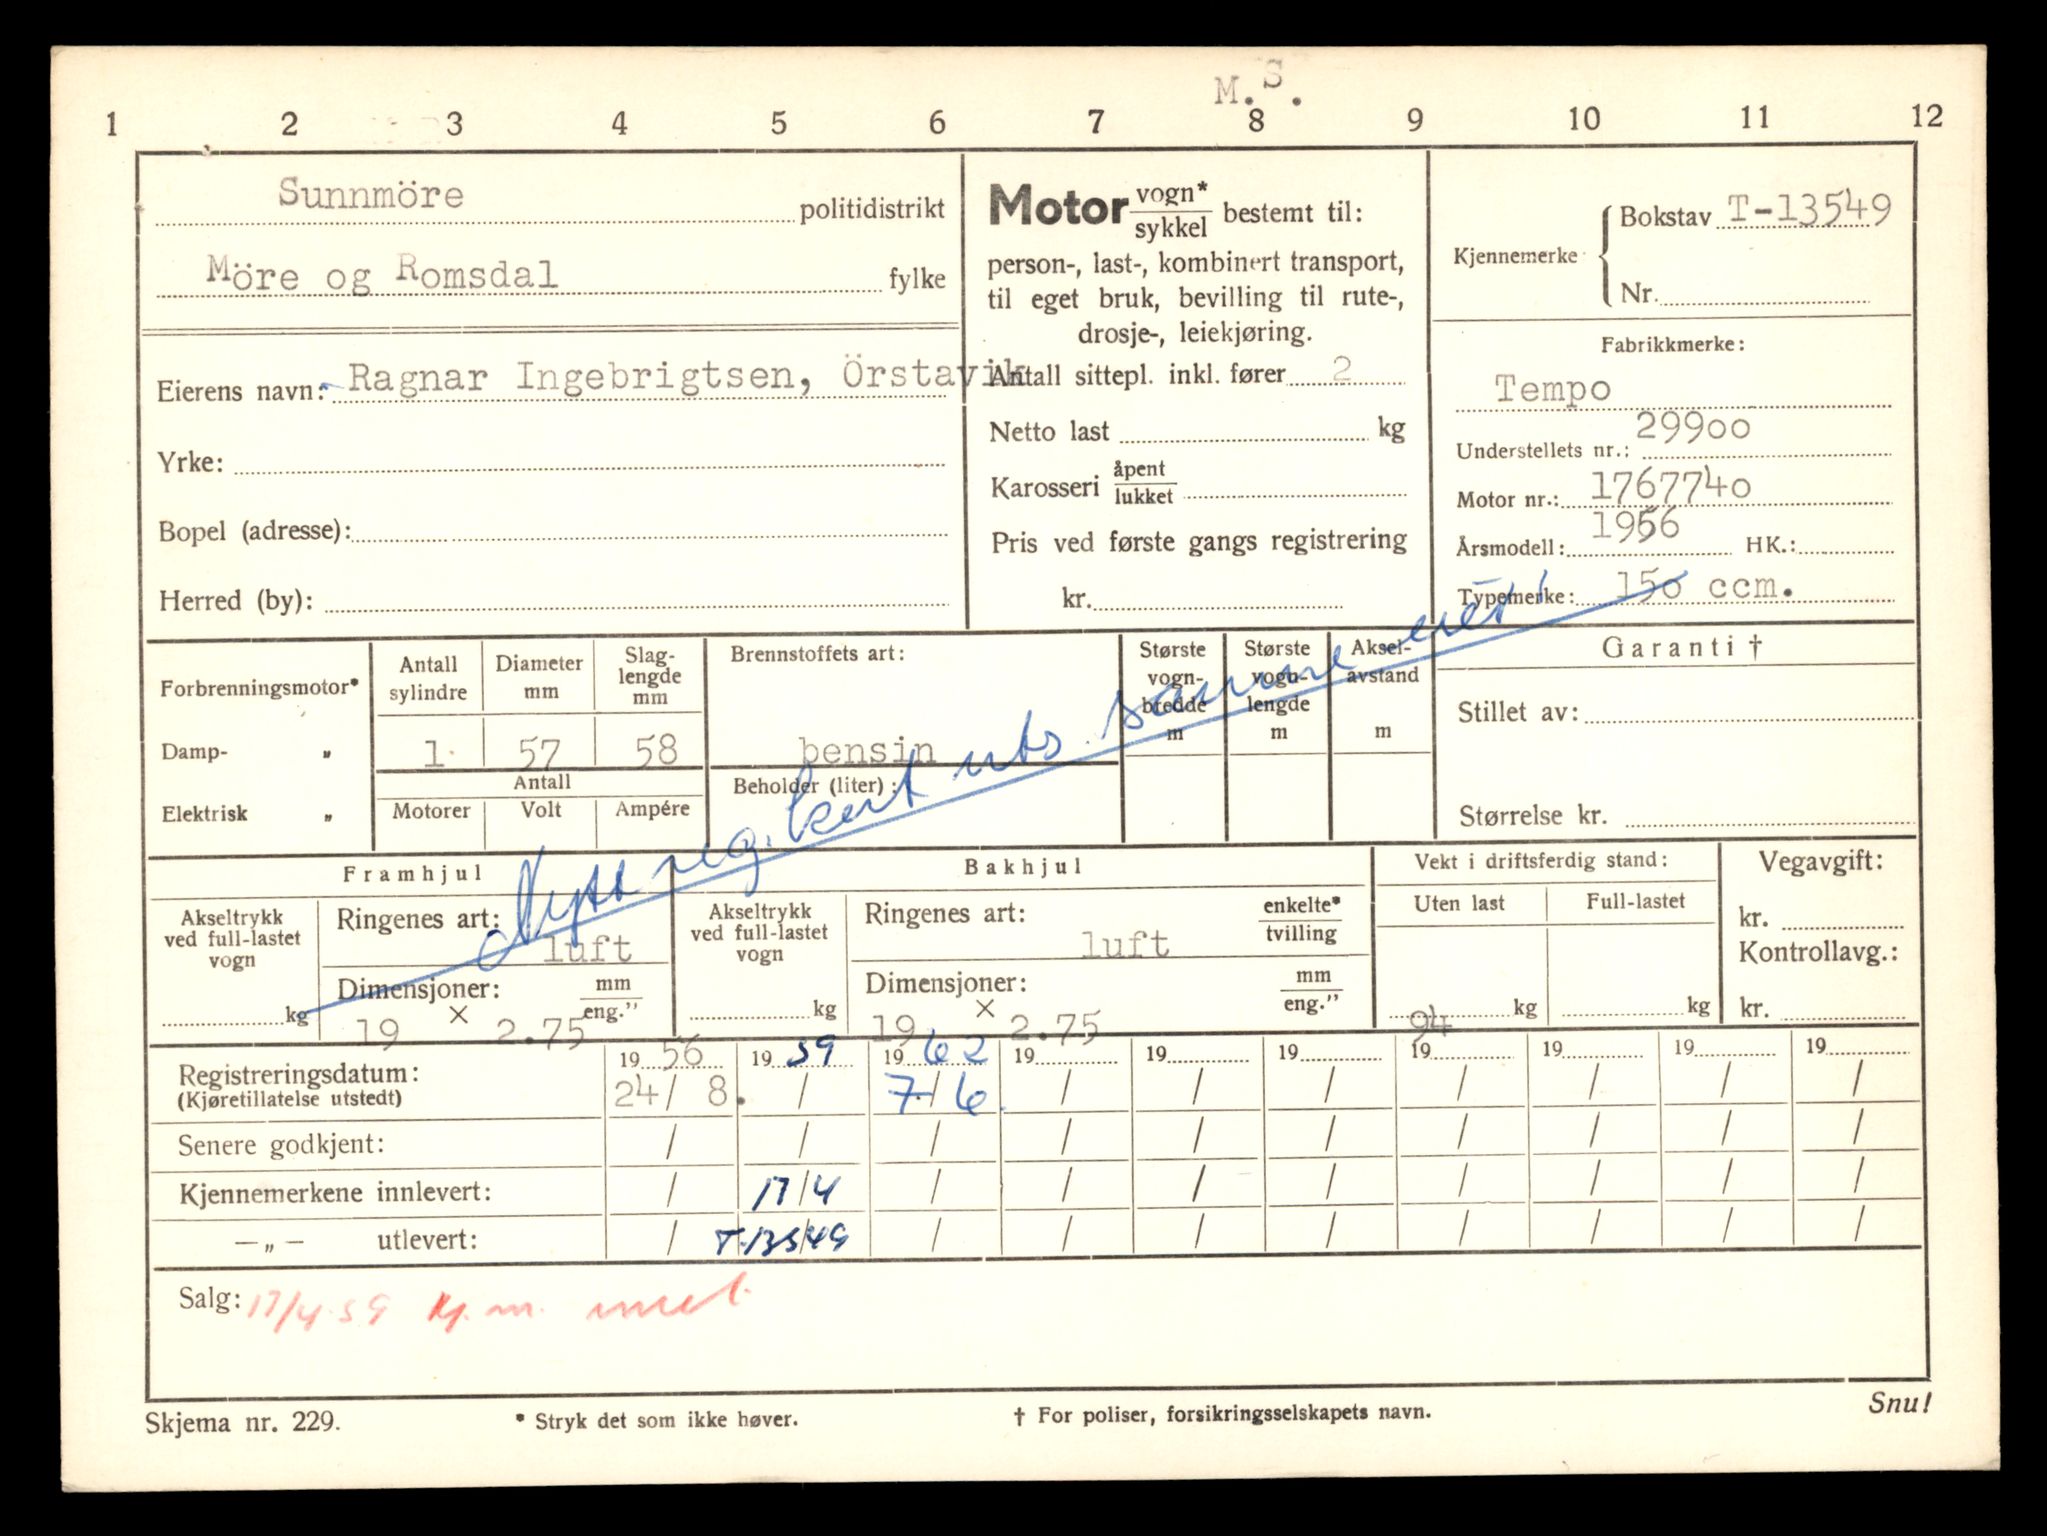 M.S.
1 2 3 4 5 6 7 8 9 10 11 12
Sunnmöre politidistrikt
Möre og Romsdal fylke
Eierens navn: Ragnar Ingebrigtsen, Örstavik
Yrke:
Bopel (adresse):
Herred (by):
Motor vogn* / sykkel bestemt til:
person-, last-, kombinert transport,
til eget bruk, bevilling til rute-,
drosje-, leiekjøring.
Antall sittepl. inkl. fører 2
Netto last kg
Karosseri åpent / lukket
Pris ved første gangs registrering
kr.
Kjennemerke { Bokstav T-13549
Nr.
Fabrikkmerke:
Tempo
Understellets nr.: 29900
Motor nr.: 1767740
Årsmodell: 1956 HK.:
Typemerke: 150 ccm.
Forbrenningsmotor*
Damp- „
Elektrisk „
Antall sylindre
Diameter mm
Slag-lengde mm
1 57 58
Antall
Motorer Volt Ampére
Brennstoffets art:
bensin
Beholder (liter):
Største vogn-bredde m
Største vogn-lengde m
Aksel-avstand m
Garanti †
Stillet av:
Størrelse kr.
Nytt reg. kort uts samme eier
Framhjul
Akseltrykk ved full-lastet vogn
kg
Ringenes art:
luft
Dimensjoner: mm / eng."
19 × 2.75
Bakhjul
Akseltrykk ved full-lastet vogn
kg
Ringenes art: enkelte* / tvilling
luft
Dimensjoner: mm / eng."
19 × 2.75
Vekt i driftsferdig stand:
Uten last Full-lastet
kg kg
94
Vegavgift:
kr.
Kontrollavg.:
kr.
19 56 19 59 19 62 19 19 19 19 19 19 19
Registreringsdatum: 24/ 8. / 7/6. / / / / / / /
(Kjøretillatelse utstedt)
Senere godkjent: / / / / / / / / / /
Kjennemerkene innlevert: / 17/4 / / / / / / / /
—„— utlevert: / T-13549 / / / / / / / /
Salg: 17/4-59 Kj.m. innl.
Skjema nr. 229.
* Stryk det som ikke høver.
† For poliser, forsikringsselskapets navn.
Snu!